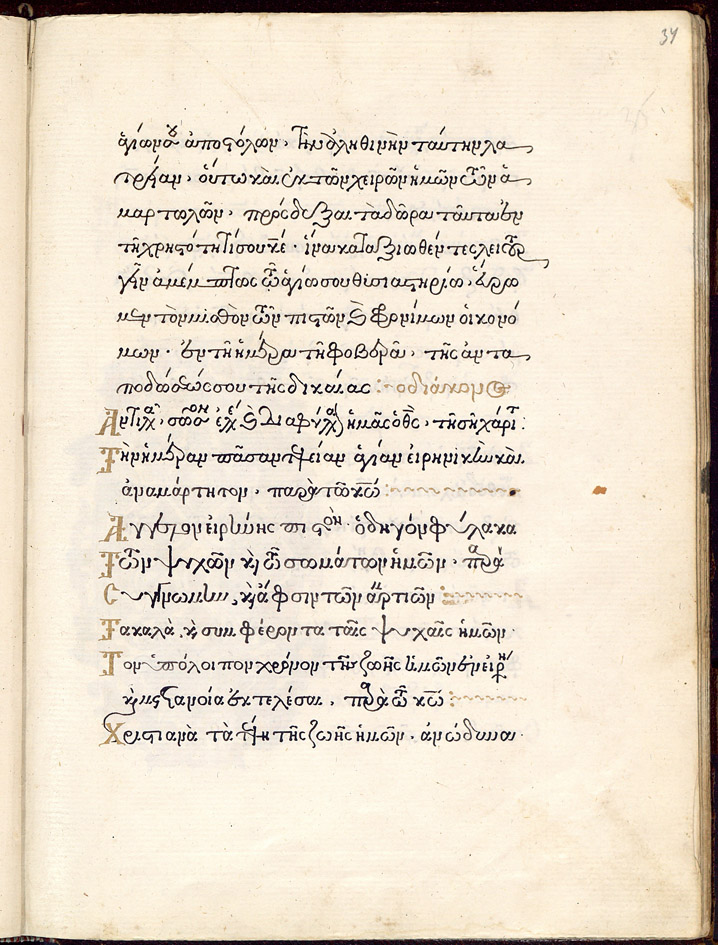 34
ἁγίων σου ἀποστόλων, τὴν ἀληθινὴν ταύτην λα
τρείαν, οὕτω καὶ ἐκ τῶν χειρῶν ἡμῶν τῶν ἁ
μαρτωλῶν, πρόσδεξαι τὰ δῶρα ταῦτα ἐν
τῇ χρηστότητί σου κε· ἵνα καταξιωθέντες λειτουρ
γεῖν ἀμέμπτως τῷ ἁγίῳ σου θυσιαστηρίῳ, εὕρω
μεν τὸν μισθὸν τῶν πιστῶν καὶ φρονίμων οἰκονό
μων· ἐν τῇ ἡμέρᾳ τῇ φοβερᾷ, τῆς ἀντα
ποδώσεώς σου τῆς δικαίας: ὁ διάκονος
Ἀντιλ, σῶσον ἐλε καὶ διαφύλαξ ἡμᾶς ὁ θς, τῇ σῇ χάριτ:
Τὴν ἡμέραν πᾶσαν τελείαν ἁγίαν εἰρηνικὴν καὶ
ἀναμάρτητον, παρὰ τοῦ κυ:
Ἄγγελον εἰρήνης πιστὸν ὁδηγὸν φύλακα
Τῶν ψυχῶν καὶ τῶν σωμάτων ἡμῶν, παρὰ
Συγγνώμην, καὶ ἄφεσιν τῶν ἁμαρτιῶν:
Τὰ καλὰ καὶ συμφέροντα ταῖς ψυχαῖς ἡμῶν
Τὸν ὑπόλοιπον χρόνον τῆς ζωῆς ἡμῶν ἐν εἰρήν
καὶ μετανοία ἐκτελέσαι, παρὰ τοῦ κυ:
Χριστιανὰ τὰ τέλη τῆς ζωῆς ἡμῶν, ἀνώδυνα